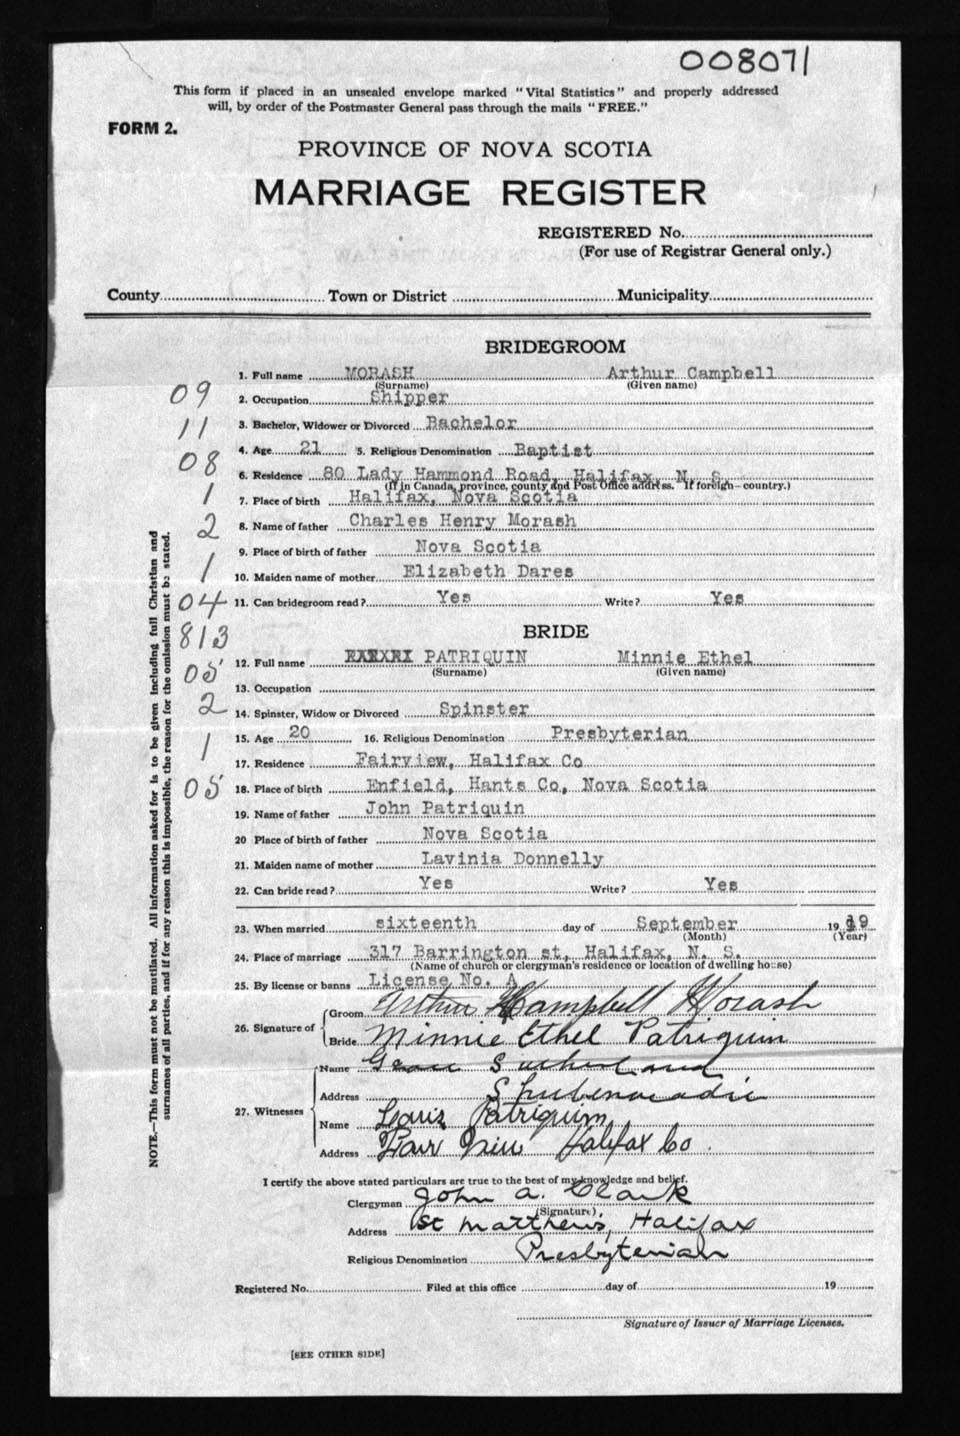 008071
This form if placed in an unsealed envelope marked "Vital Statistics" and properly addressed
will, by order of the Postmaster General pass through the mails "FREE."
FORM 2.
PROVINCE OF NOVA SCOTIA
MARRIAGE REGISTER
REGISTERED No.
(For use of Registrar General only.)
County Town or District Municipality
BRIDEGROOM
1. Full name MORASH Arthur Campbell
(Surname) (Given name)
09
2. Occupation Shipper
11
3. Bachelor, Widower or Divorced Bachelor
4. Age 21 5. Religious Denomination Baptist
08
6. Residence 80 Lady Hammond Road, Halifax, N. S.
(If in Canada, province, county and Post Office address. If foreign - country.)
1
7. Place of birth Halifax, Nova Scotia
2
8. Name of father Charles Henry Morash
9. Place of birth of father Nova Scotia
1
10. Maiden name of mother Elizabeth Dares
04
11. Can bridegroom read? Yes Write? Yes
813
BRIDE
05
12. Full name PATRIQUIN Minnie Ethel
(Surname) (Given name)
13. Occupation
2
14. Spinster, Widow or Divorced Spinster
1
15. Age 20 16. Religious Denomination Presbyterian
17. Residence Fairview, Halifax Co
05
18. Place of birth Enfield, Hants Co, Nova Scotia
19. Name of father John Patriquin
20 Place of birth of father Nova Scotia
21. Maiden name of mother Lavinia Donnelly
22. Can bride read? Yes Write? Yes
23. When married sixteenth day of September 19 19
(Month) (Year)
24. Place of marriage 317 Barrington st, Halifax, N. S.
(Name of church or clergyman's residence or location of dwelling house)
25. By license or banns License No. A
26. Signature of
Groom Arthur Campbell Morash
Bride Minnie Ethel Patriquin
27. Witnesses
Name Sutherland
Address Shubenacadie
Name Patriquin
Address Fair View Halifax Co.
I certify the above stated particulars are true to the best of my knowledge and belief.
Clergyman John A. Clark
(Signature)
Address St Matthew's, Halifax
Religious Denomination Presbyterian
Registered No. Filed at this office day of 19
Signature of Issuer of Marriage Licenses.
[SEE OTHER SIDE]
NOTE.—This form must not be mutilated. All information asked for is to be given including full Christian and
surnames of all parties, and if for any reason this is impossible, the reason for the omission must be stated.